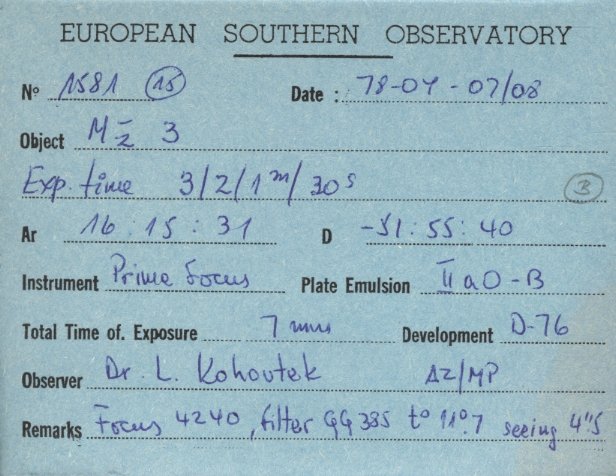 EUROPEAN SOUTHERN OBSERVATORY
Nº 1581 (15) Date : 78-04-07/08
Object Mz 3
Exp. time 3/2/1m/30s B
Ar 16:15:31 D -51:55:40
Instrument Prime Focus Plate Emulsion IIaO-B
Total Time of. Exposure 7 mns Development D-76
Observer Dr. L. Kohoutek AZ/MP
Remarks Focus 4240, filter GG 385 tº 11º.7 seeing 4"5